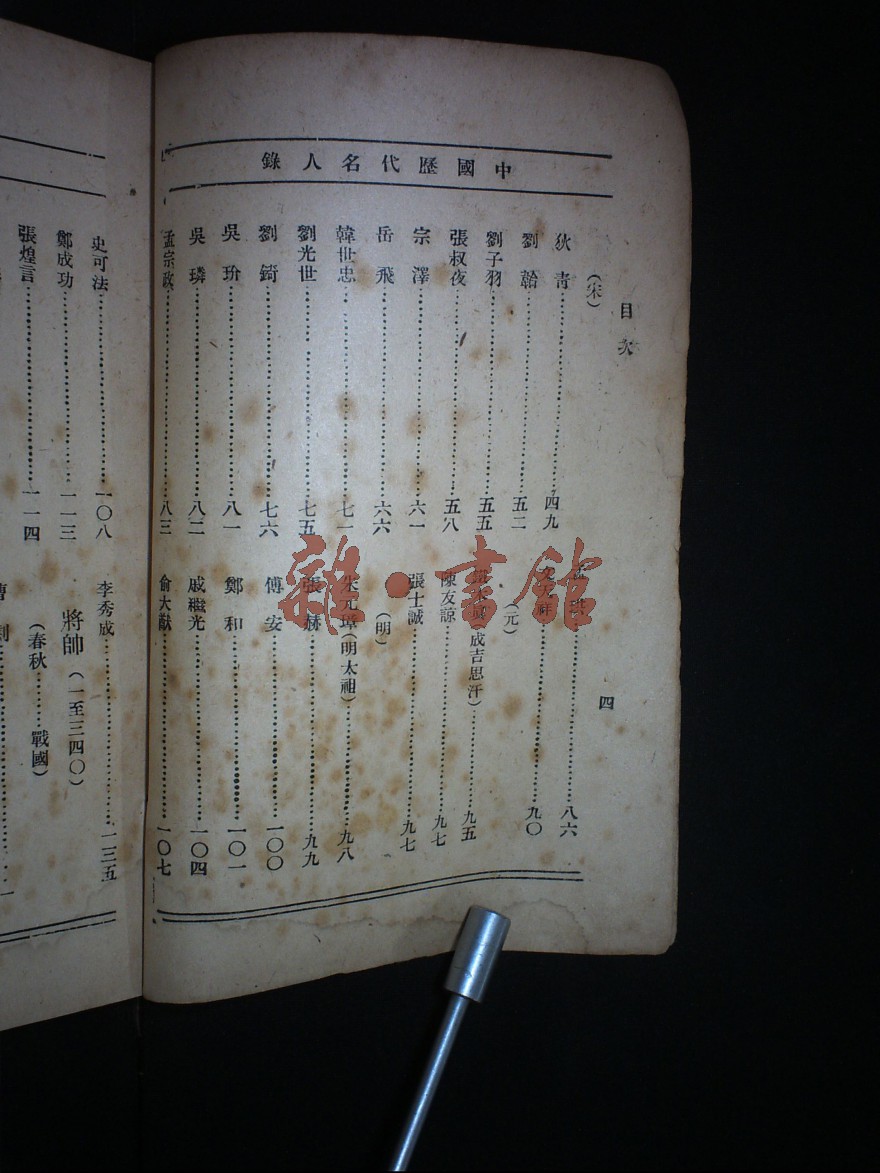 中國歷代名人錄
目次
四
(宋)
狄青……四九
劉韐……五二
劉子羽……五五
張叔夜……五八
宗澤……六一
岳飛……六六
韓世忠……七一
劉光世……七五
劉錡……七六
吳玠……八一
吳璘……八二
孟宗政……八三
孟珙……八六
文天祥……九〇
(元)
鐵木真(成吉思汗)……九五
陳友諒……九七
張士誠……九七
(明)
朱元璋(明太祖)……九八
張赫……九九
傅安……一〇〇
鄭和……一〇一
戚繼光……一〇四
俞大猷……一〇七
史可法……一〇八
鄭成功……一一三
張煌言……一一四
李秀成……一三五
將帥(一至三四〇)
(春秋……戰國)
雜·書館